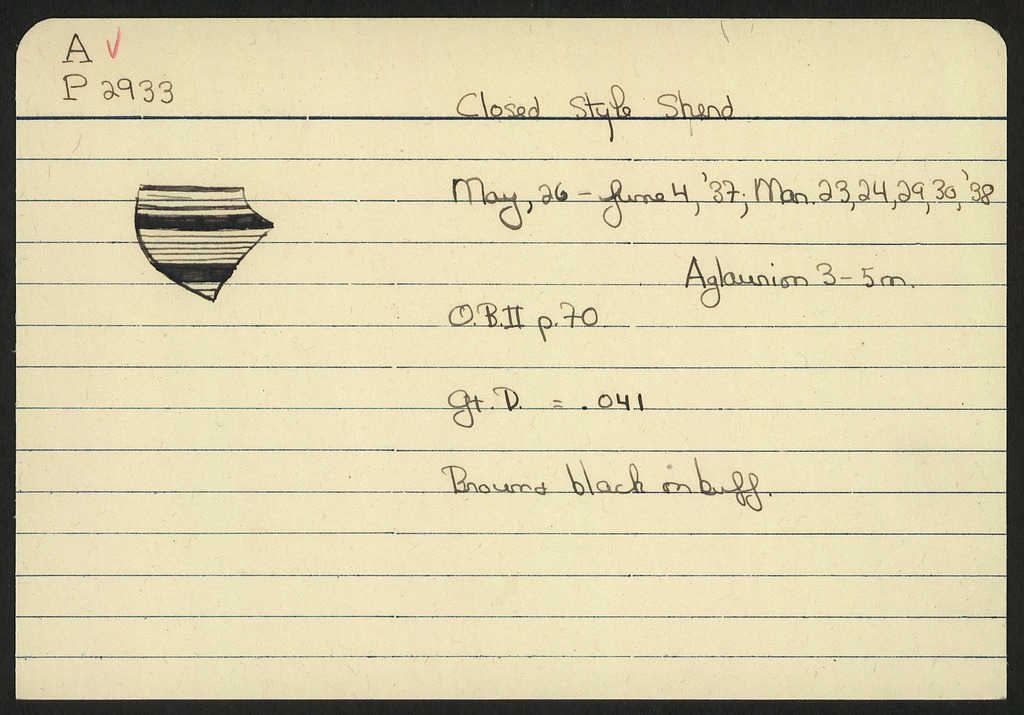 A
P 2933
Closed Style Sherd
May, 26 - June 4, '37; Mar. 23, 24, 29, 30, '38
Aglaurion 3-5m.
O.B.II p.70
Gt. D. = .041
Brown & black on buff.